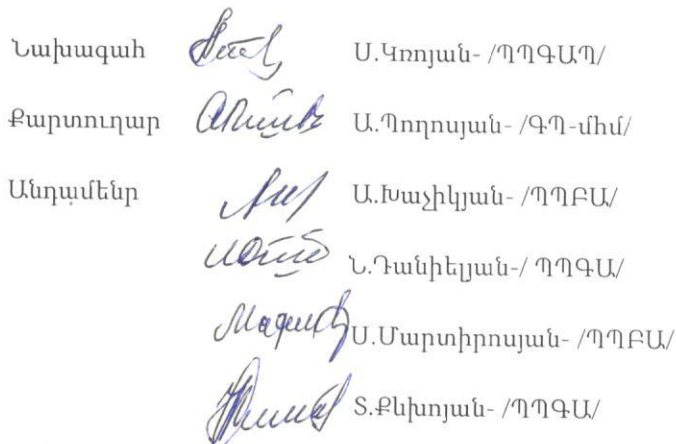 Նախագահ Ս.Կռոյան- /ՊՊԳԱՊ/
Քարտուղար Ա.Պողոսյան- /ԳՊ-մհմ/
Անդամենր Ա.Խաչիկյան- /ՊՊԲԱ/
Ն.Դանիելյան-/ ՊՊԳԱ/
Ս.Մարտիրոսյան- /ՊՊԲԱ/
Տ.Քևխոյան- /ՊՊԳԱ/